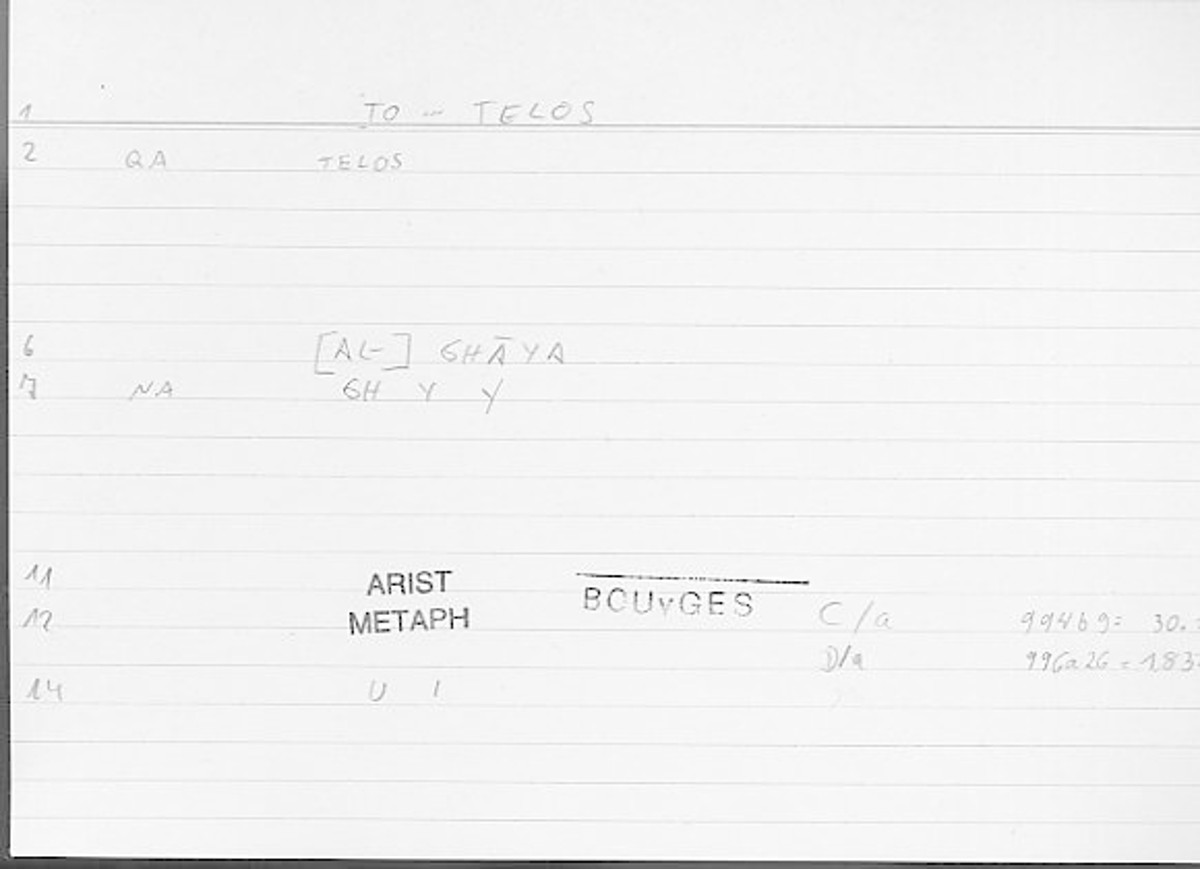 1 TO -- TELOS
2 QA TELOS
6 [AL-] GHĀYA
7 NA GH Y Y
11 ARIST
12 METAPH BOUYGES C/a 994b9= 30.
D/a 996a26 = 183
14 U I